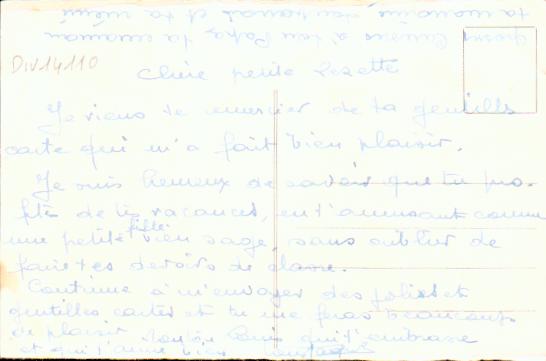 Div14110
Chère petite Lozette
Je viens te remercier de ta gentille
carte qui m'a fait bien plaisir.
Je suis heureux de savoir que tu pro-
fite de tes vacances, en t'amusant comme
une petite fille bien sage, sans oublier de
faire tes devoirs de classe.
Continue à m'envoyer des jolies et
gentilles cartes et tu me feras beaucoup
de plaisir. Tonton Louis qui t'embrasse
et qui t'aime bien
Grosses à ton Papa, ta maman
ta et ta mémé